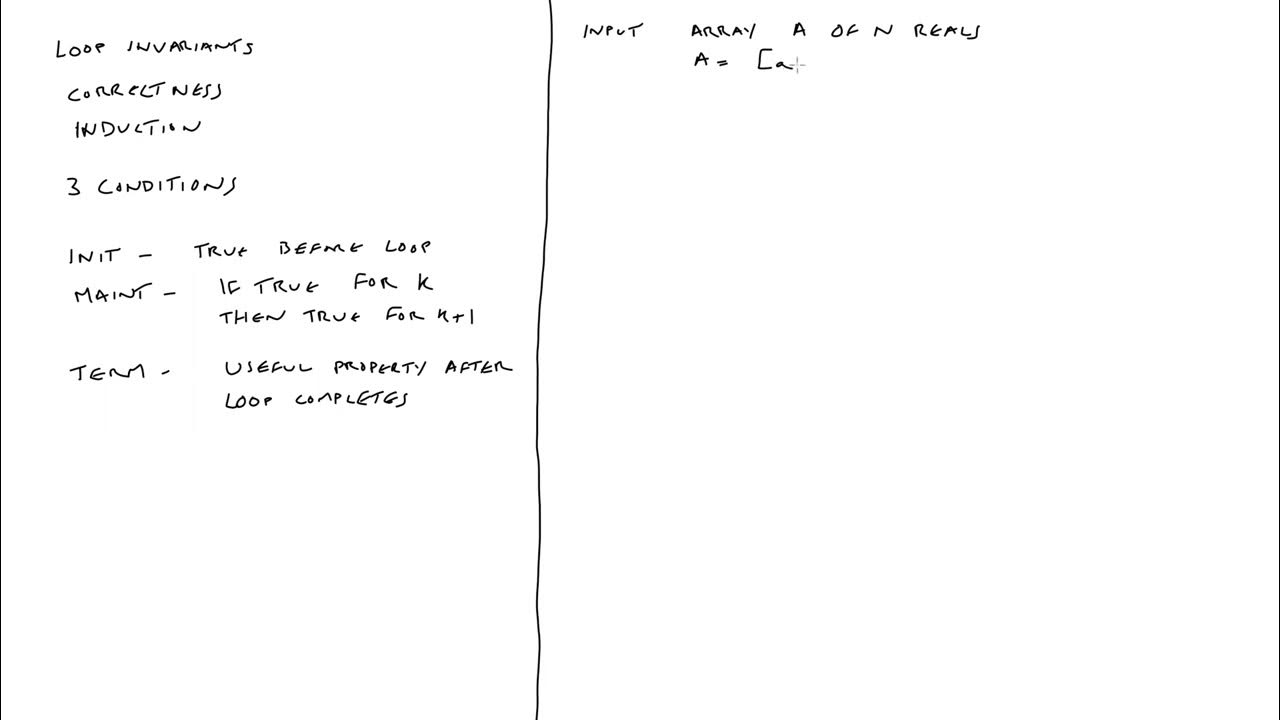 LOOP INVARIANTS
CORRECTNESS
INDUCTION
3 CONDITIONS
INIT - TRUE BEFORE LOOP
MAINT - IF TRUE FOR K
THEN TRUE FOR K+1
TERM - USEFUL PROPERTY AFTER
LOOP COMPLETES
INPUT ARRAY A OF N REALS
A = [a